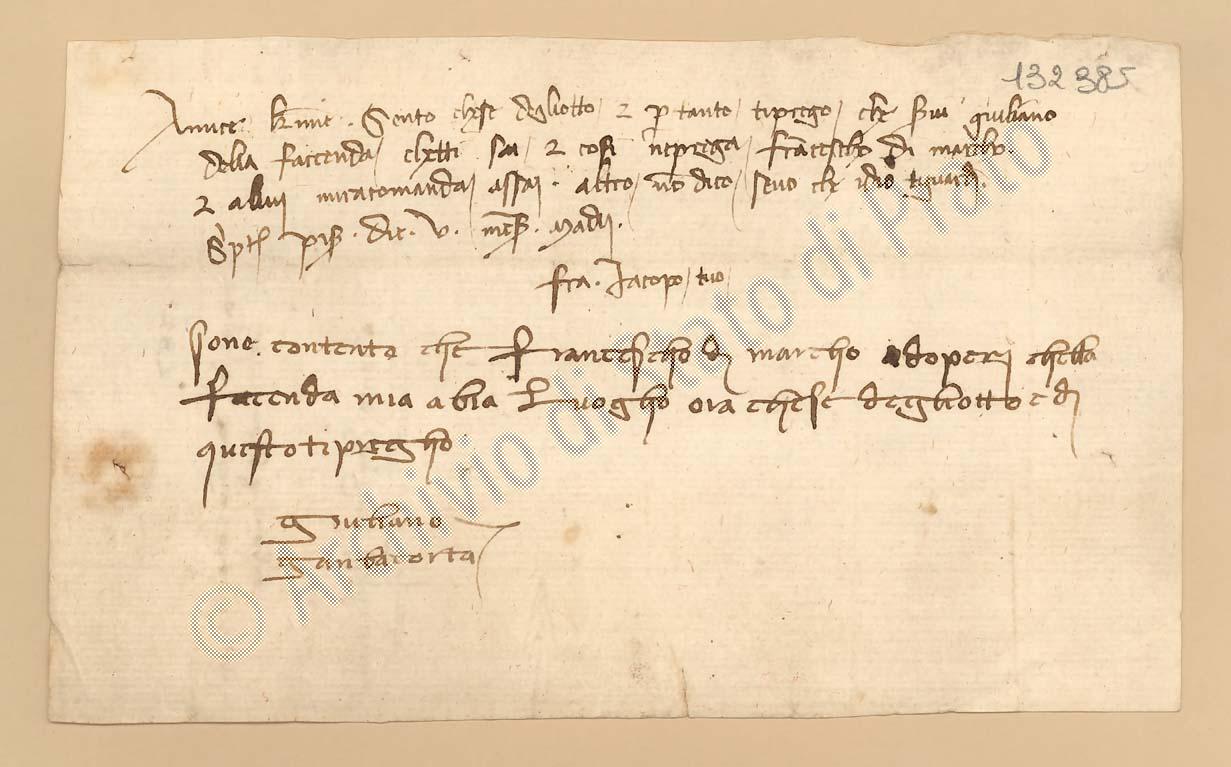 132385
Amice karissime. Sento chese degliotto. et per tanto tipregho che servi giuliano
della faccenda chetti sai et cosi neprega francescho di marcho.
et allui miracomanda assai. altro non dico senno che idio tiguardi.
Pisis. die. v. mensis. Madii.
fra. Jacopo tuo
Sono contento che francescho di marcho adoperi chella
faccenda mia abia luogho ora chese degliotto e di
questo ti pregho
giuliano
ganbacorta
© Archivio di Stato di Prato